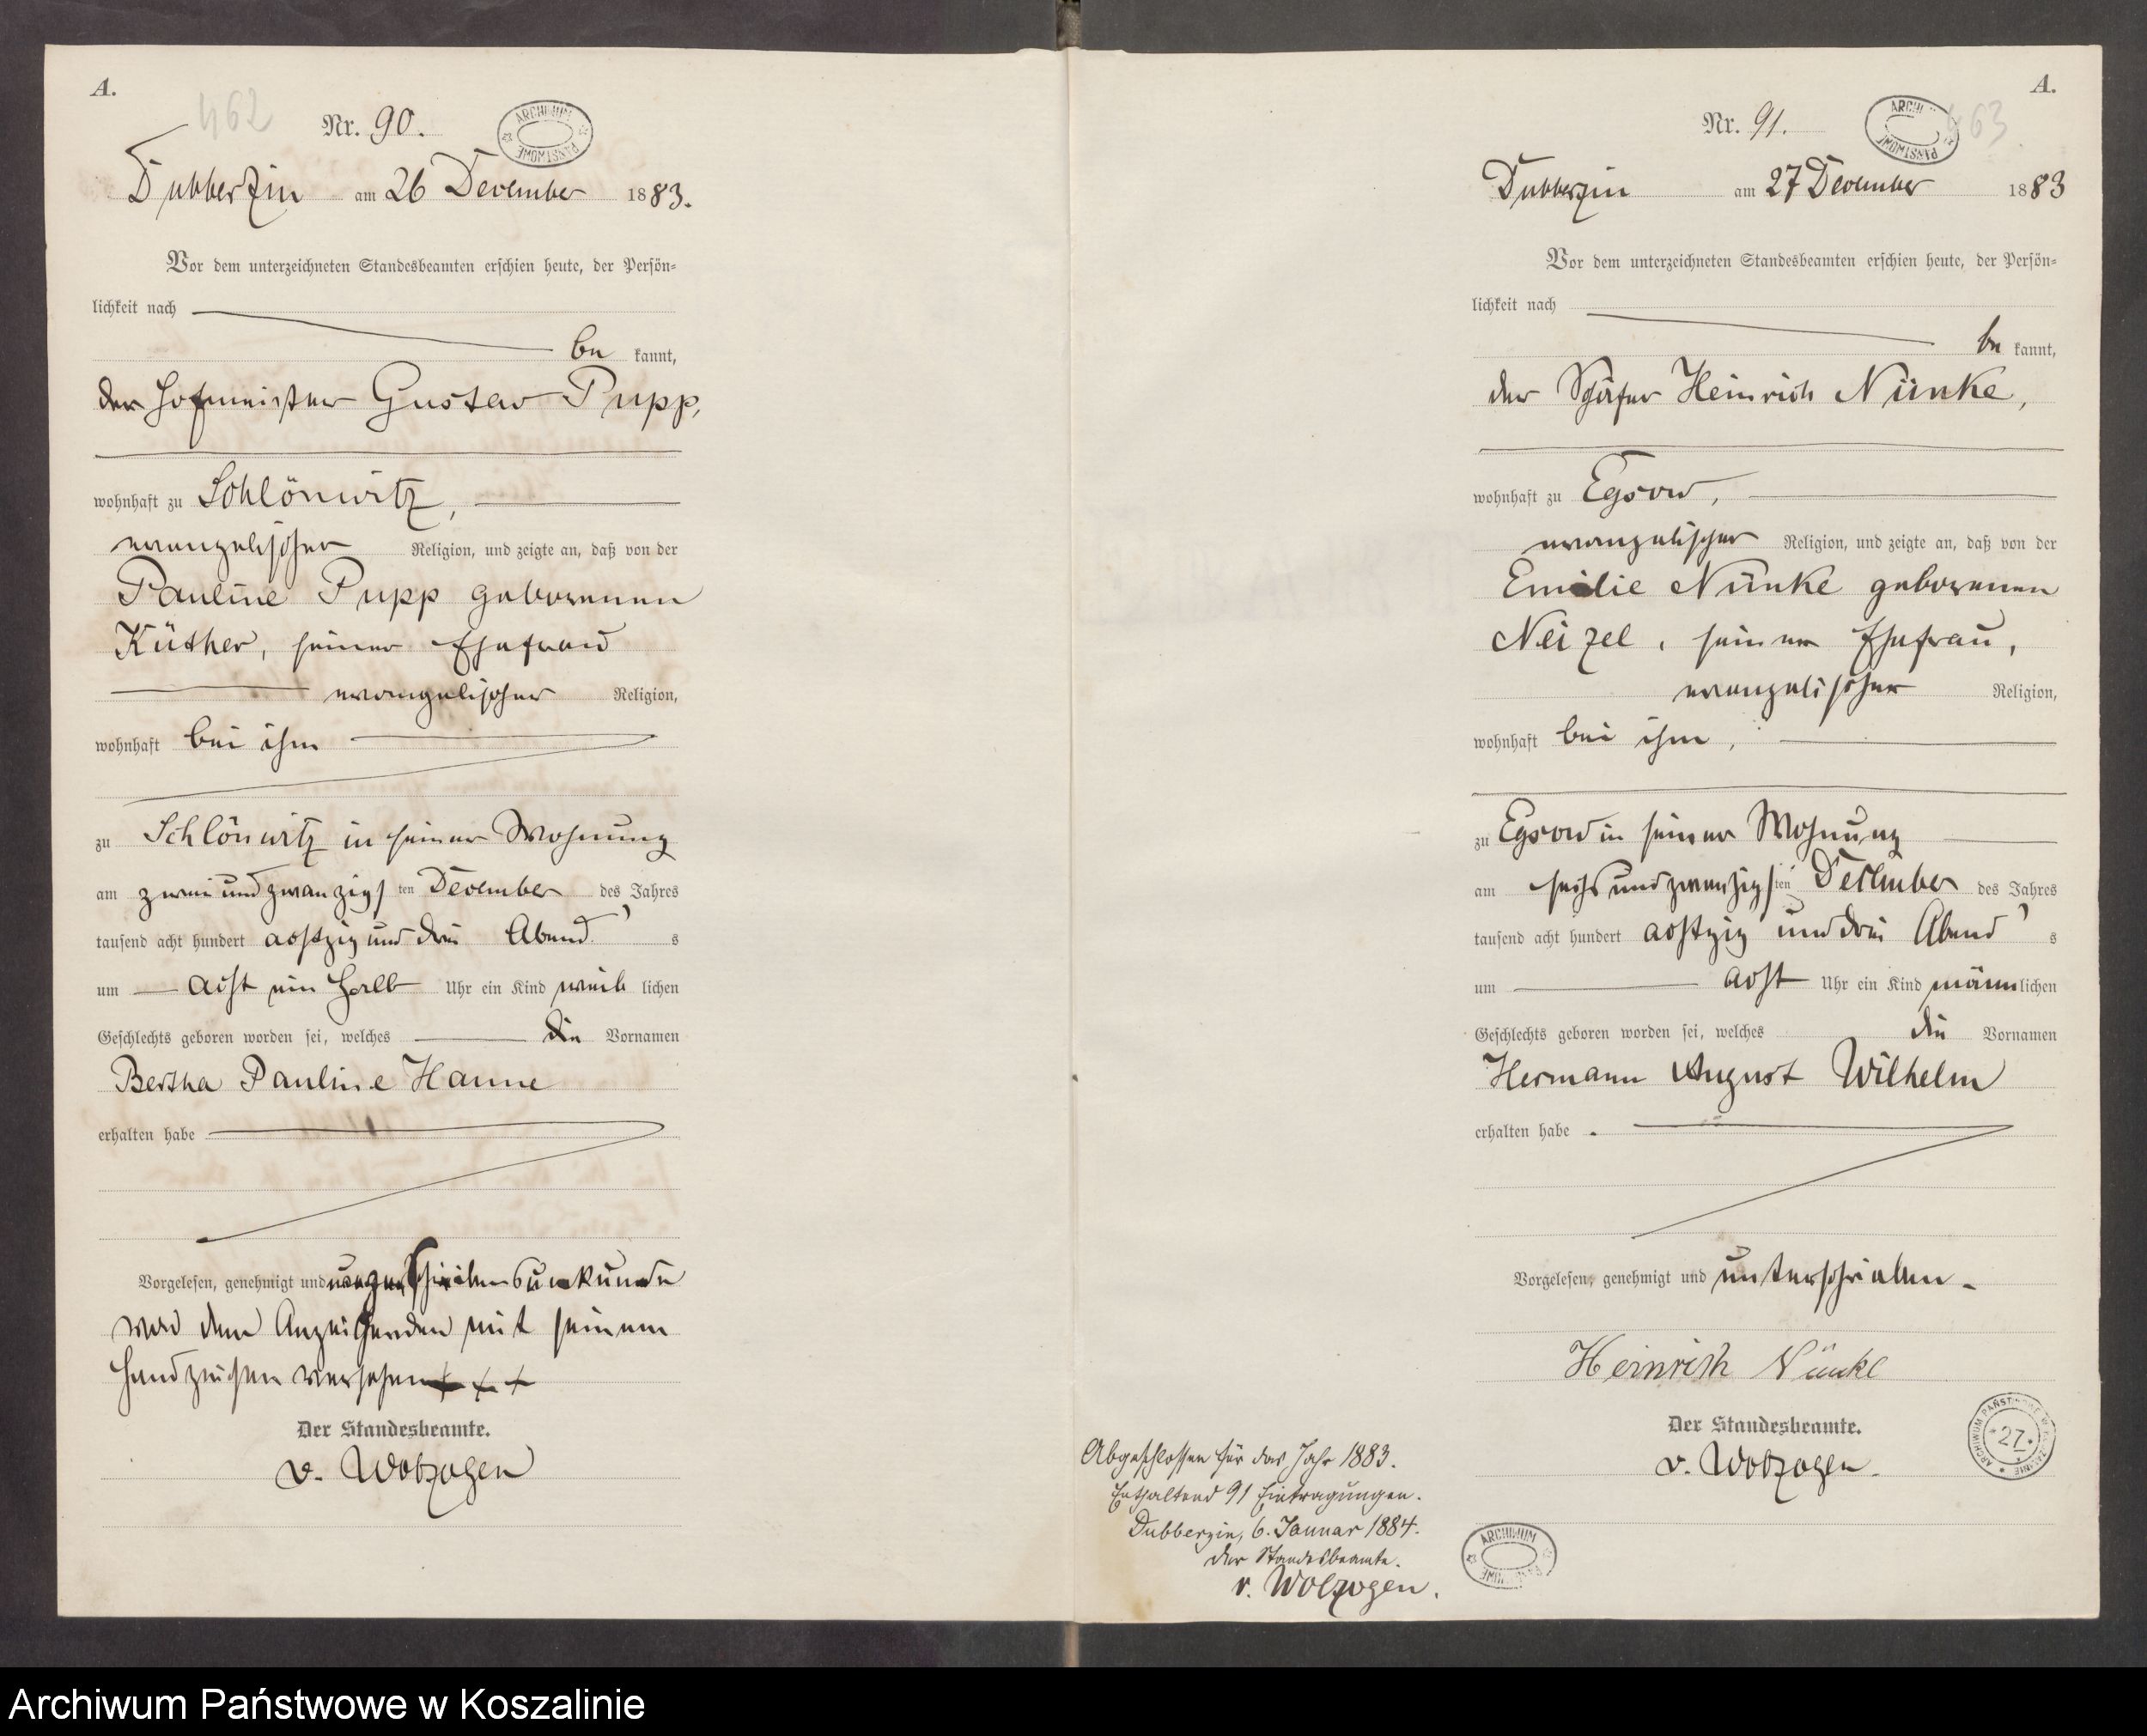 A.
462
Nr. 90.
ARCHIWUM PAŃSTWOWE
Dubberzin am 26 December 1883.
Vor dem unterzeichneten Standesbeamten erschien heute, der Persön=
lichkeit nach
be kannt,
der Hofmeister Gustav Pupp,
wohnhaft zu Schlönwitz,
evangelischer Religion, und zeigte an, daß von der
Pauline Pupp geborenen
Küther, seiner Ehefrau
evangelischer Religion,
wohnhaft bei ihm
zu Schlönwitz in seiner Wohnung
am zwei und zwanzigs ten December des Jahres
tausend acht hundert achtzig und drei Abend s
um acht ein halb Uhr ein Kind weib lichen
Geschlechts geboren worden sei, welches die Vornamen
Bertha Pauline Hanne
erhalten habe
Vorgelesen, genehmigt und
von dem Anzeigenden mit seinem
Handzeichen versehen + + +
Der Standesbeamte.
v. Wolzogen
A.
463
Nr. 91.
ARCHIWUM PAŃSTWOWE
Dubberzin am 27 December 1883
Vor dem unterzeichneten Standesbeamten erschien heute, der Persön=
lichkeit nach
be kannt,
der Schäfer Heinrich Nünke,
wohnhaft zu Egsow,
evangelischer Religion, und zeigte an, daß von der
Emilie Nünke geborenen
Neizel, seiner Ehefrau,
evangelischer Religion,
wohnhaft bei ihm,
zu Egsow in seiner Wohnung
am sechs und zwanzigs ten December des Jahres
tausend acht hundert achtzig und drei Abend s
um acht Uhr ein Kind männ lichen
Geschlechts geboren worden sei, welches die Vornamen
Hermann August Wilhelm
erhalten habe .
Vorgelesen, genehmigt und unterschrieben
Heinrich Nünke
Der Standesbeamte.
v. Wolzogen.
27
Abgeschlossen für das Jahr 1883.
Enthaltend 91 Eintragungen.
Dubberzin, 6. Januar 1884.
der Standesbeamte.
v. Wolzogen.
ARCHIWUM PAŃSTWOWE
Archiwum Państwowe w Koszalinie